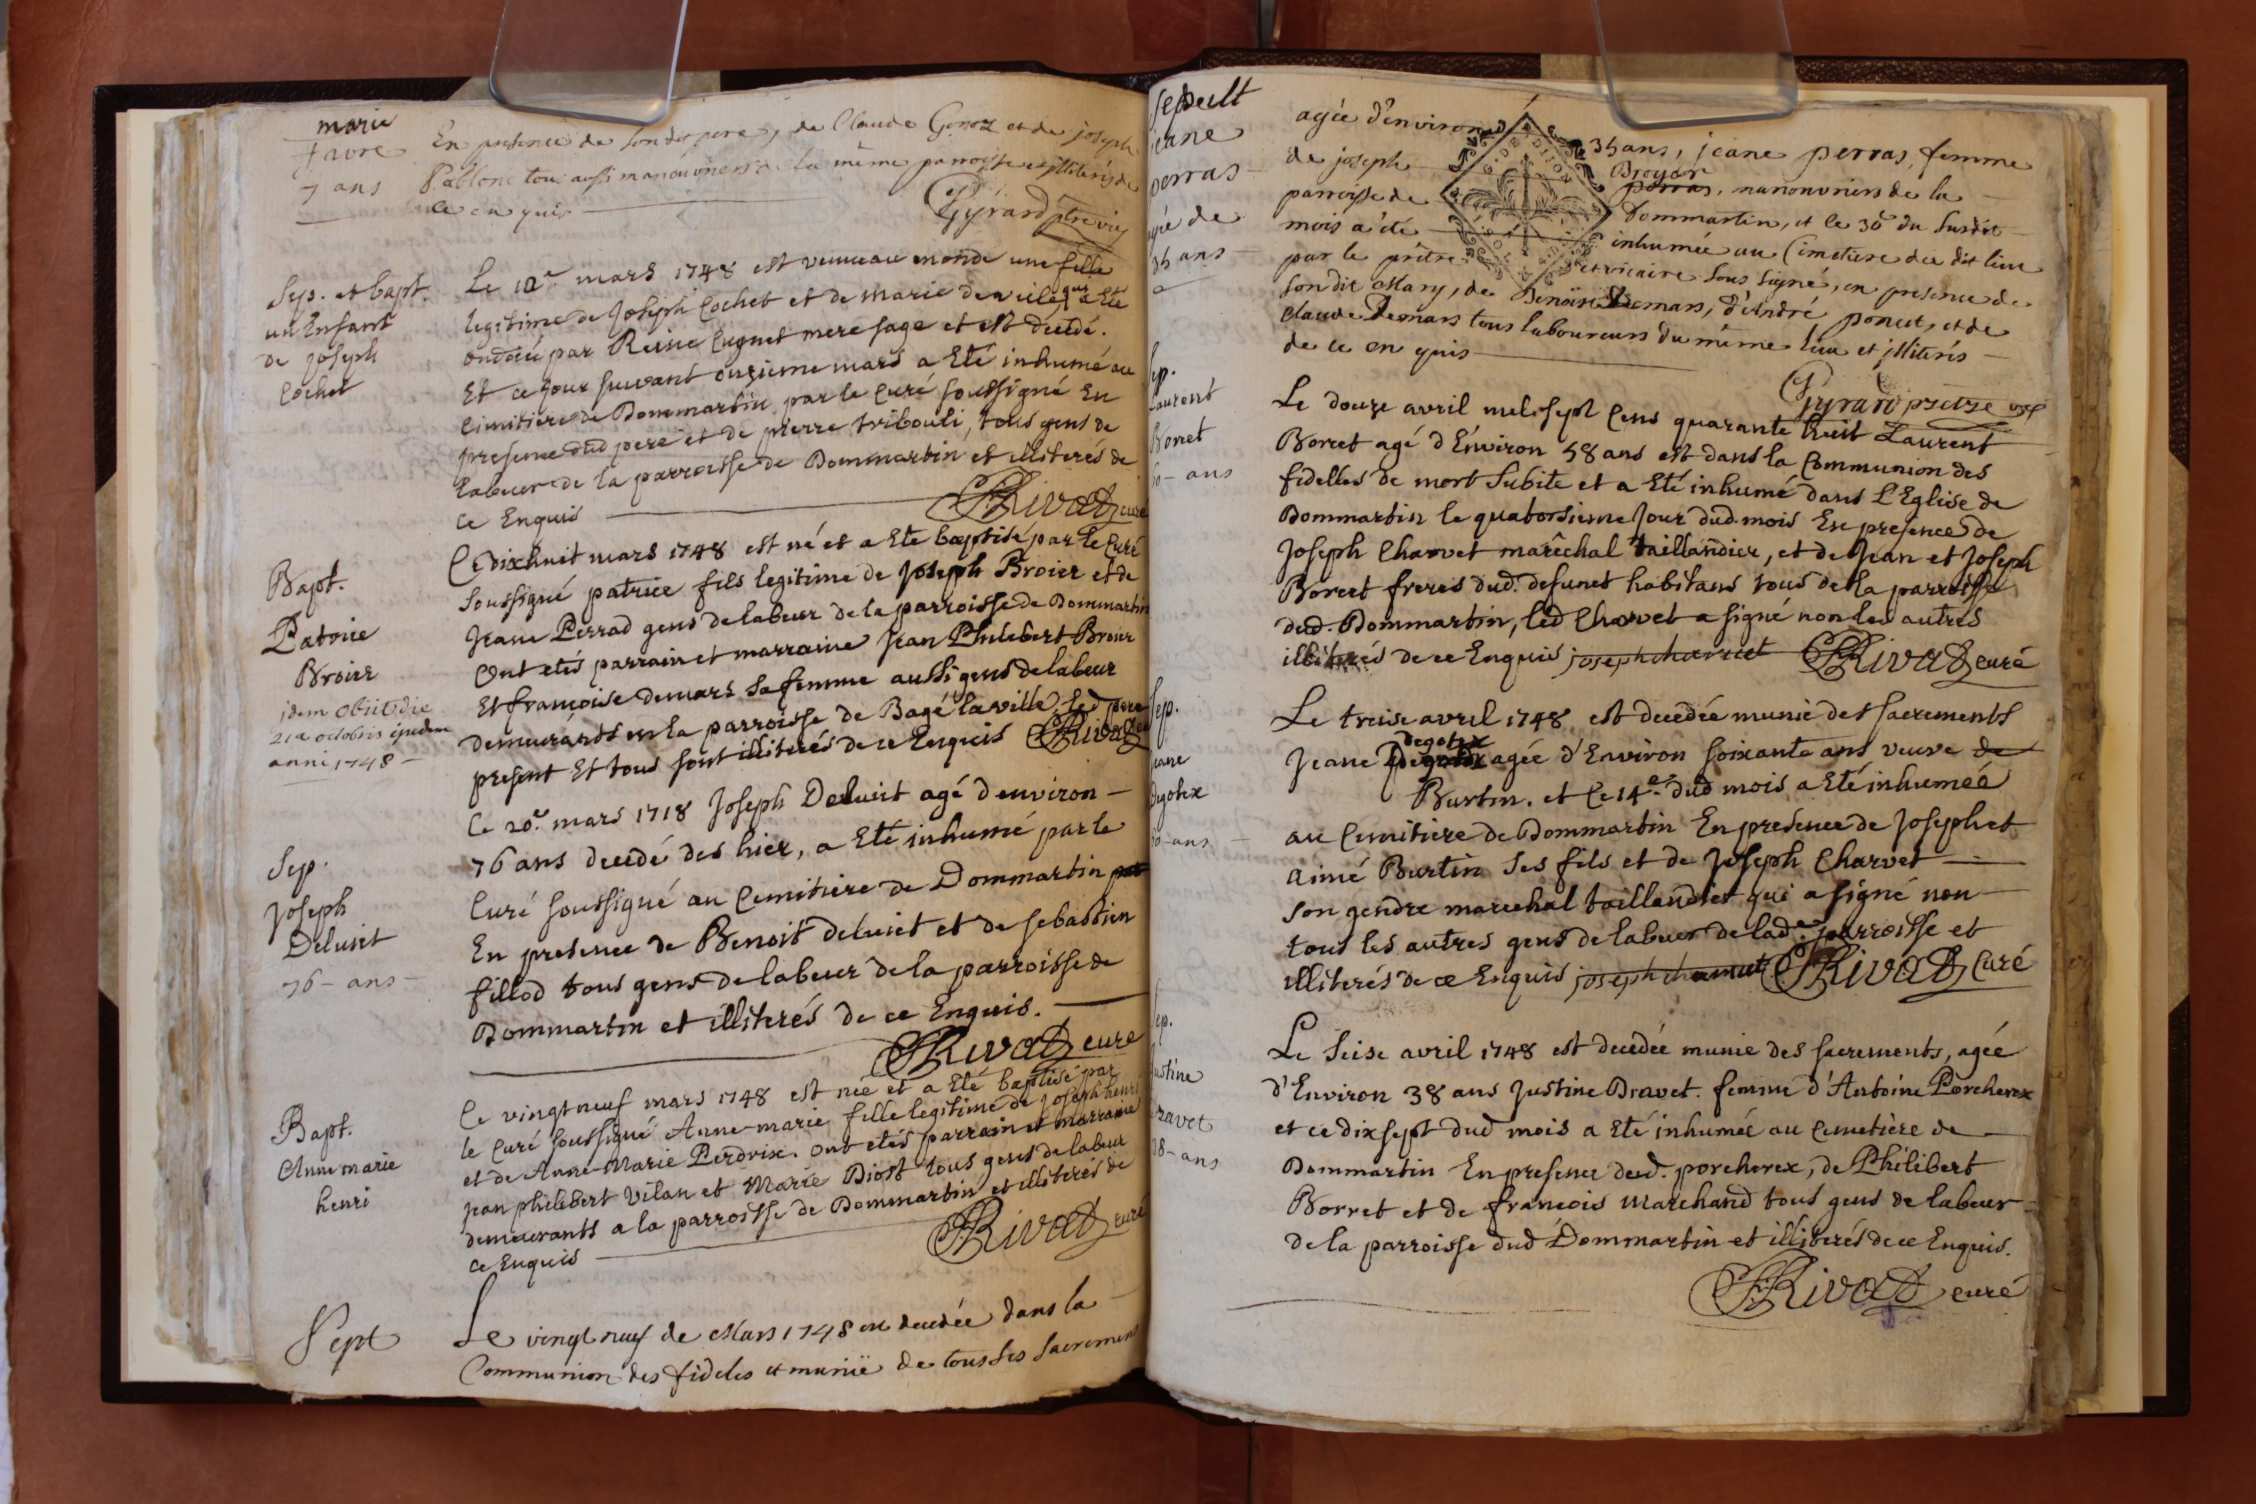 marie
favre
7 ans
En presence de son dit pere, de Claude Gonoz et de joseph
tous aussi manouvriers de la même parroisse et illiterés de
ce enquis
Gyrard ptre vic
Sep. et bapt.
un Enfant
de Joseph
Cochet
Le 10e mars 1748 est venue au monde une fille
legitime de Joseph Cochet et de marie deville, qui a Eté
ondoié par Reine Cugnet mere sage et est decedé.
Et ce jour suivant onzieme mars a Eté inhumé au
Cimitiere de Dommartin par le Curé soussigné En
presence dud pere et de pierre tribouli, tous gens de
Labeur de la parroisse de Dommartin et illiterés de
ce Enquis
Rivat curé
Bapt.
Patrice
Broier
idem obiit die
21a octobris ejusdem
anni 1748
Ce dixhuit mars 1748 est né et a Eté baptisé par le Curé
soussigné patrice fils legitime de Joseph Broier et de
Jeane Perrad gens de labeur de la parroisse de Dommartin
Ont etés parrain et marraine Jean Philibert Broier
Et françoise demars sa femme aussi gens de labeur
demeurants en la parroisse de Bagé la ville, led pere
present Et tous sont illiterés de ce Enquis Rivat curé
Sep.
Joseph
Deluiset
76 - ans
Ce 20e mars 1718 Joseph Deluiset agé d'environ
76 ans decedé des hier, a Eté inhumé par le
Curé soussigné au Cemitiere de Dommartin
En presence de Benoit deluiset et de sebastien
fillod tous gens de labeur de la parroisse de
Dommartin et illiterés de ce Enquis.
Rivat curé
Bapt.
Anne marie
henri
Ce vingt neuf mars 1748 est née et a Eté baptisé par
le Curé soussigné Anne-marie fille legitime de Joseph henri
et de Anne-Marie Perdrix. Ont etés parrain et marraine
Jean philibert Vilan et Marie Diost tous gens de labeur
demeurants a la parroisse de Dommartin et illiterés de
ce Enquis
Rivat curé
Sept
Le vingt neuf de Mars 1748 est decedée dans la
Communion des fideles et munië de tous ses Sacremens
Sepult
jeane
perras
agée de
35 ans
agée d'environ 35 ans, jeane perras, femme
de joseph Broyer perras, manouvriers de la
parroisse de Dommartin, et le 30 du susdit
mois a été inhumée au Cimetiere du dit lieu
par le prêtre et vicaire sous signé, en presence de
son dit Mary, de Benoist Demars, d'André poncet, et de
Claude Demars tous laboureurs du même lieu et illiterés
de ce en quis
Gyrard prêtre vic
G. DE DIJON
Sep.
Laurent
Borret
60 - ans
Le douze avril mil sept Cens quarante huit Laurent
Borret agé d'Environ 58 ans est dans la Communion des
fidelles de mort Subite et a Eté inhumé dans L'Eglise de
Dommartin le quatorsieme Jour dud. mois En presence de
Joseph Charvet marêchal taillandier, et de Jean et Joseph
Borret freres dud. defunct habitans tous de la parroisse
dud. Dommartin, led Charvet a signé non les autres
illiterés de ce Enquis joseph charvet Rivat curé
Sep.
jeane
Degotex
60 - ans
Le treise avril 1748 est decedée munie des sacrements
Jeane degotex agée d'Environ soixante ans veuve de
Burtin. et Ce 14e. dud mois a Eté inhumeé
au Cemitiere de Dommartin En presence de Joseph et
aimé Burtin ses fils et de Joseph Charvet
son gendre marechal taillandier qui a signé non
tous les autres gens de labeur de lade. parroisse et
illiterés de ce Enquis joseph charvet Rivat Curé
Sep.
justine
Dravet
38 - ans
Le seise avril 1748 est decedée munie des sacrements, agée
d'Environ 38 ans Justine Dravet. femme d'Antoine Porcherex
et ce dixsept dud mois a Eté inhumée au Cemetière de
Dommartin En presence dud. porcherex, de Philibert
Borret et de francois Marchand tous gens de labeur
de la parroisse dud Dommartin et illiterés de ce Enquis.
Rivat curé